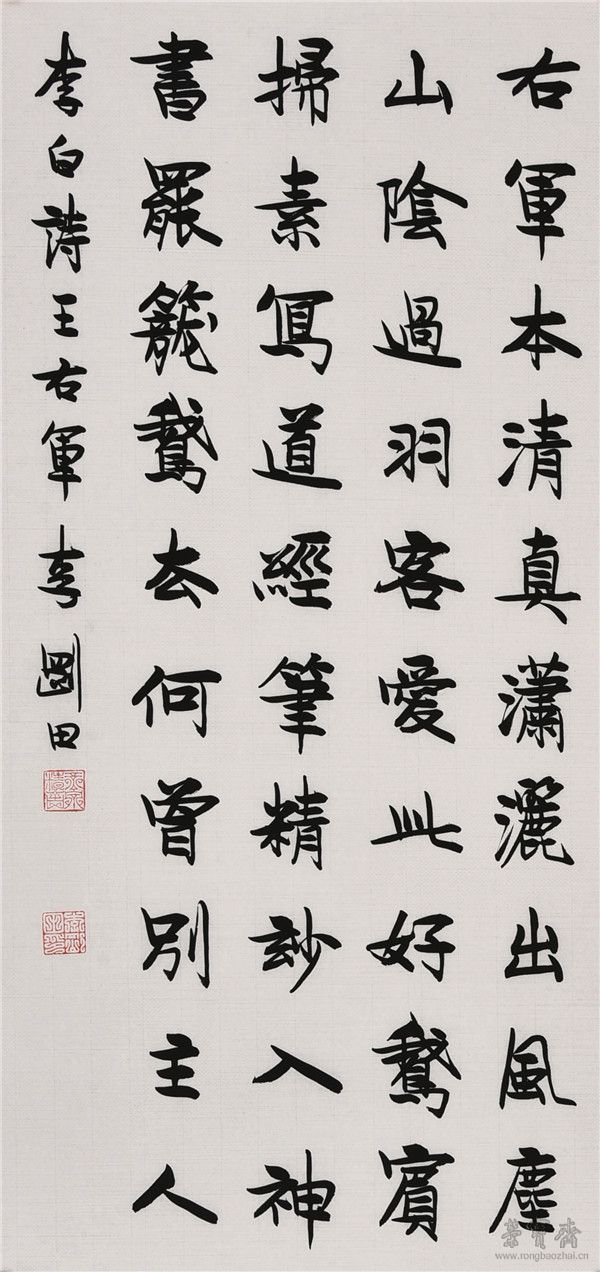 右軍本清真瀟灑出風塵
山陰過羽客愛此好鵞賓
掃素寫道經筆精玅入神
書罷籠鵞去何曾別主人
李白詩王右軍 李剛田
榮寶齋
www.rongbaozhai.cn